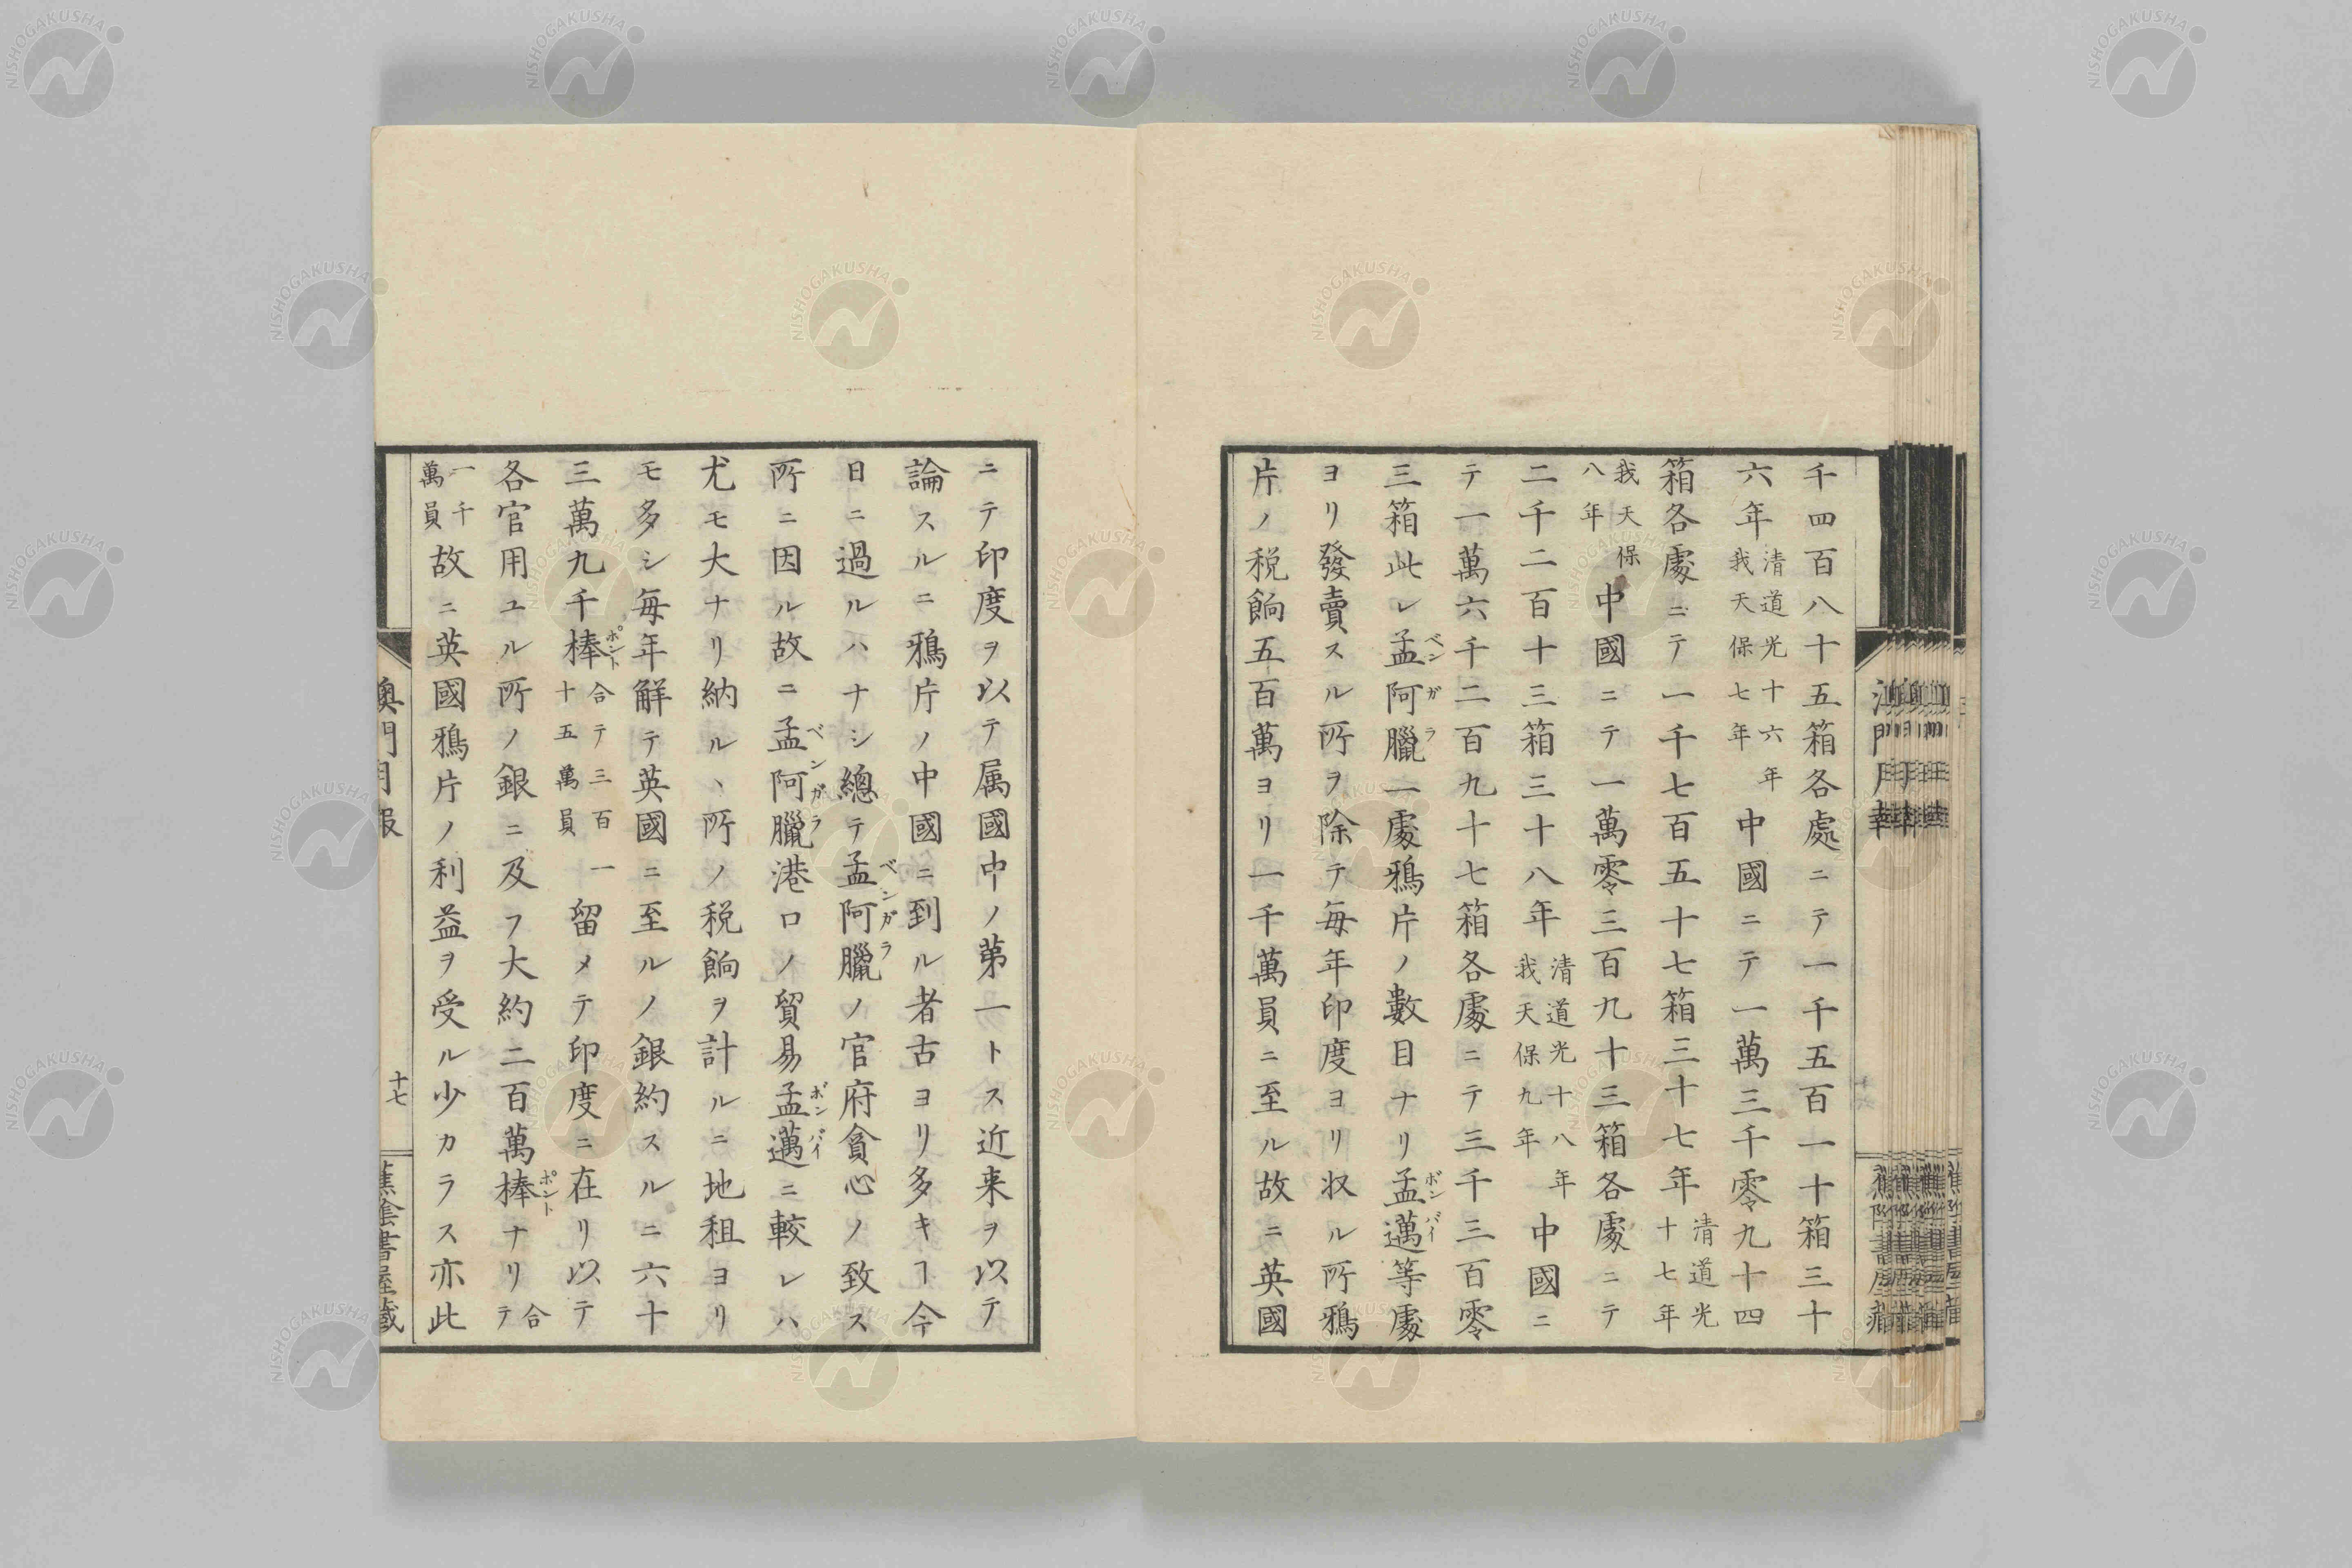 千四百八十五箱各處ニテ一千五百一十箱三十
六年清道光十六年我天保七年中國ニテ一萬三千零九十四
箱各處ニテ一千七百五十七箱三十七年清道光十七年
我天保八年中國ニテ一萬零三百九十三箱各處ニテ
二千二百十三箱三十八年清道光十八年我天保九年中國ニ
テ一萬六千二百九十七箱各處ニテ三千三百零
三箱此レ孟阿臘一處鴉片ノ數目ナリ孟邁等處
ベンガラ
ボンバイ
ヨリ發賣スル所ヲ除テ毎年印度ヨリ収ル所鴉
片ノ税餉五百萬ヨリ一千萬員ニ至ル故ニ英國
ニテ印度ヲ以テ属國中ノ第一トス近来ヲ以テ
論スルニ鴉片ノ中國ニ到ル者古ヨリ多キヿ今
日ニ過ルハナシ總テ孟阿臘ノ官府貪心ノ致ス
ベンガラ
所ニ因ル故ニ孟阿臘港口ノ貿易孟邁ニ較レハ
ベンガラ
ボンバイ
尤モ大ナリ納ルヽ所ノ税餉ヲ計ルニ地租ヨリ
モ多シ毎年解テ英國ニ至ルノ銀約スルニ六十
三萬九千棒合テ三百一十五萬員留メテ印度ニ在リ以テ
ポント
各官用ユル所ノ銀ニ及フ大約二百萬棒ナリ合テ
ポント
一千萬員故ニ英國鴉片ノ利益ヲ受ル少カラス亦此
澳門月報
十七
蕉陰書屋藏
NISHOGAKUSHA